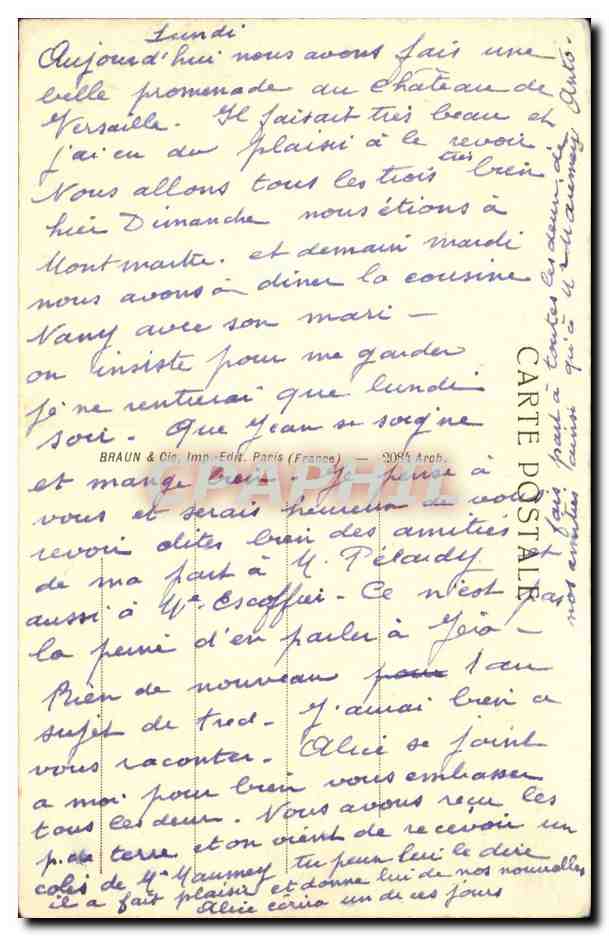 Lundi
Aujourd'hui nous avons fais une
belle promenade au Château de
Versaille. Il faisait très beau et
j'ai eu du plaisir à le revoir.
Nous allons tous les trois très bien
hier Dimanche nous étions à
Montmartre. et demain mardi
nous avons à diner la cousine
Nany avec son mari -
on insiste pour me garder
je ne rentrerai que lundi
soir. Que Jean se soigne
BRAUN & Cie, Imp.-Edit. Paris (France) — 2084 Arch.
et mange bien. Je pense à
vous et serais heureux de vous
revoir dites bien des amitiés
de ma part à M. Pélardy
aussi à Me Escoffier. Ce n'est pas
la peine d'en parler à
Rien de nouveau pour l au
sujet de Fred. J'aurai bien a
vous raconter. Alice se joint
a moi pour bien vous embrasser
tous les deux. Nous avons reçu les
p. de terre et on vient de recevoir un
colis de Me Maumey tu peux lui le dire
il a fait plaisir et donne lui de nos nouvelles
Alice écrira un de ces jours
CARTE POSTALE
fais part à toutes les deux de
nos amitiés ainsi qu'à Mr Maumey
CPAPHIL